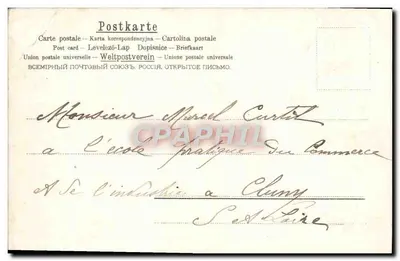 Postkarte
Carte postale – Karta korespondencyjna – Cartolina postale
Post card – Levelező-Lap Dopisnice – Briefkaart
Union postale universelle – Weltpostverein – Unione postale universale
ВСЕМІРНЫЙ ПОЧТОВЫЙ СОЮЗЪ, РОССІЯ, ОТКРЫТОЕ ПИСЬМО.
Monsieur Marcel
CPARAMA
a l'école pratique du Commerce
& de l'industrie a Cluny
S A Loire